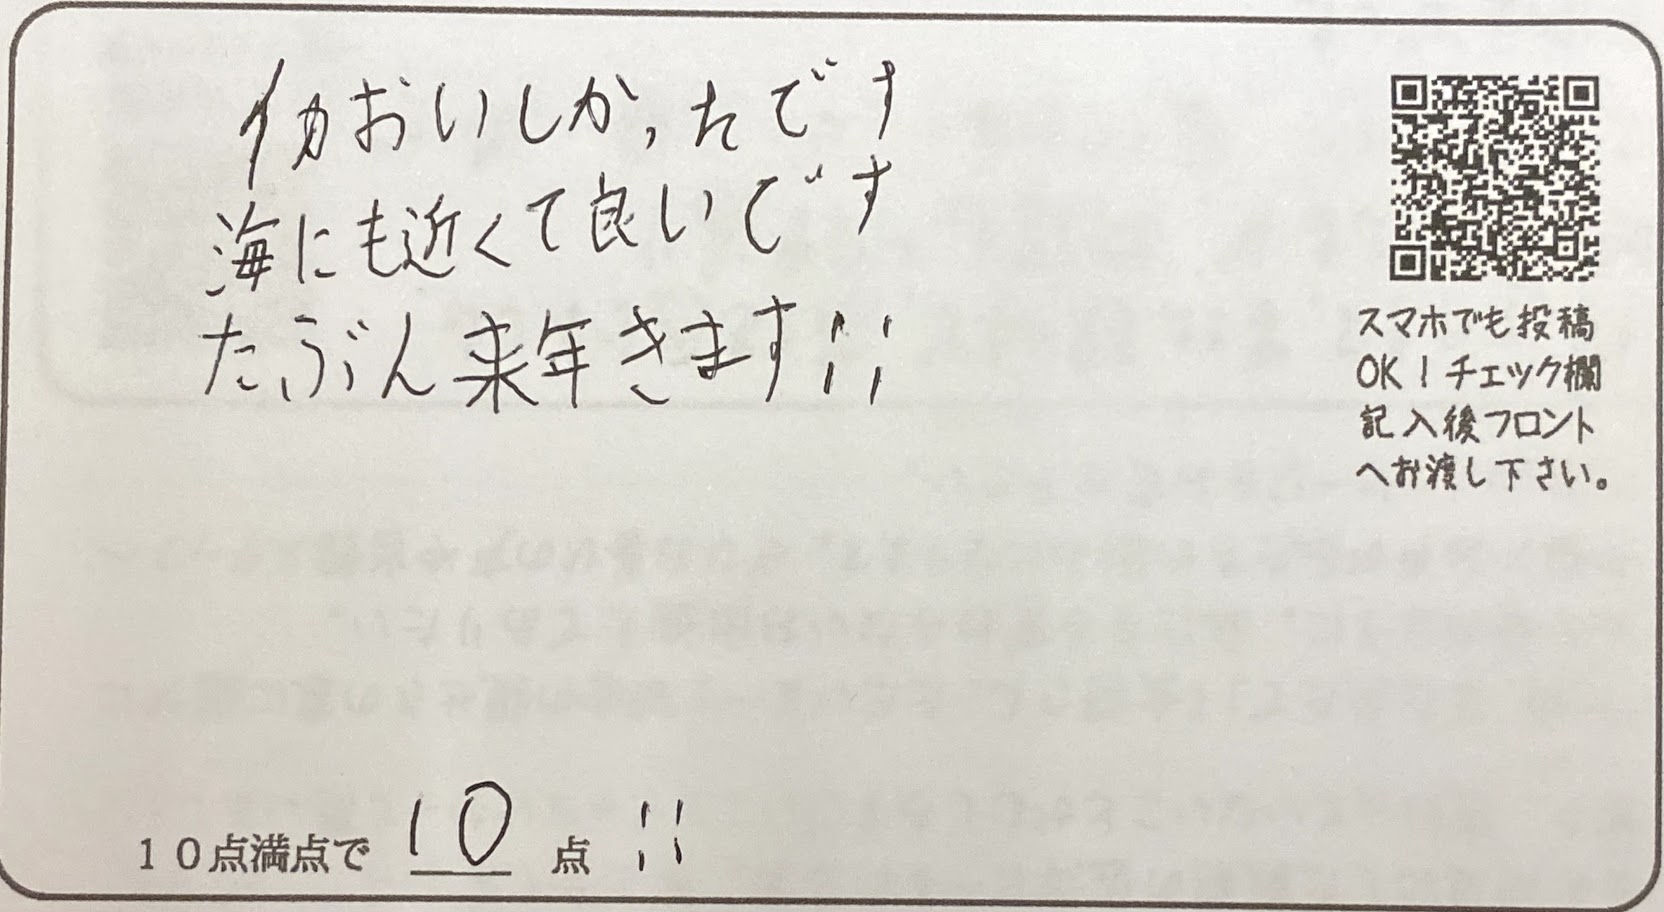 イカおいしかったです
海にも近くて良いです
たぶん来年きます!!
スマホでも投稿
OK！チェック欄
記入後フロント
へお渡し下さい。
10点満点で 10 点 !!